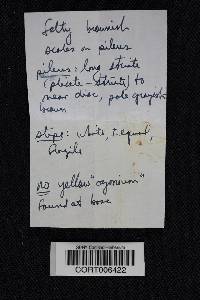 Felty brownish
scales on pileus
pileus: long striate
(plicate-striate) to
near disc, pale grayish
brown
stipe: white, ± equal,
fragile
no yellow "ozonium"
found at base
SUNY Cortland Herbarium
CORT006422